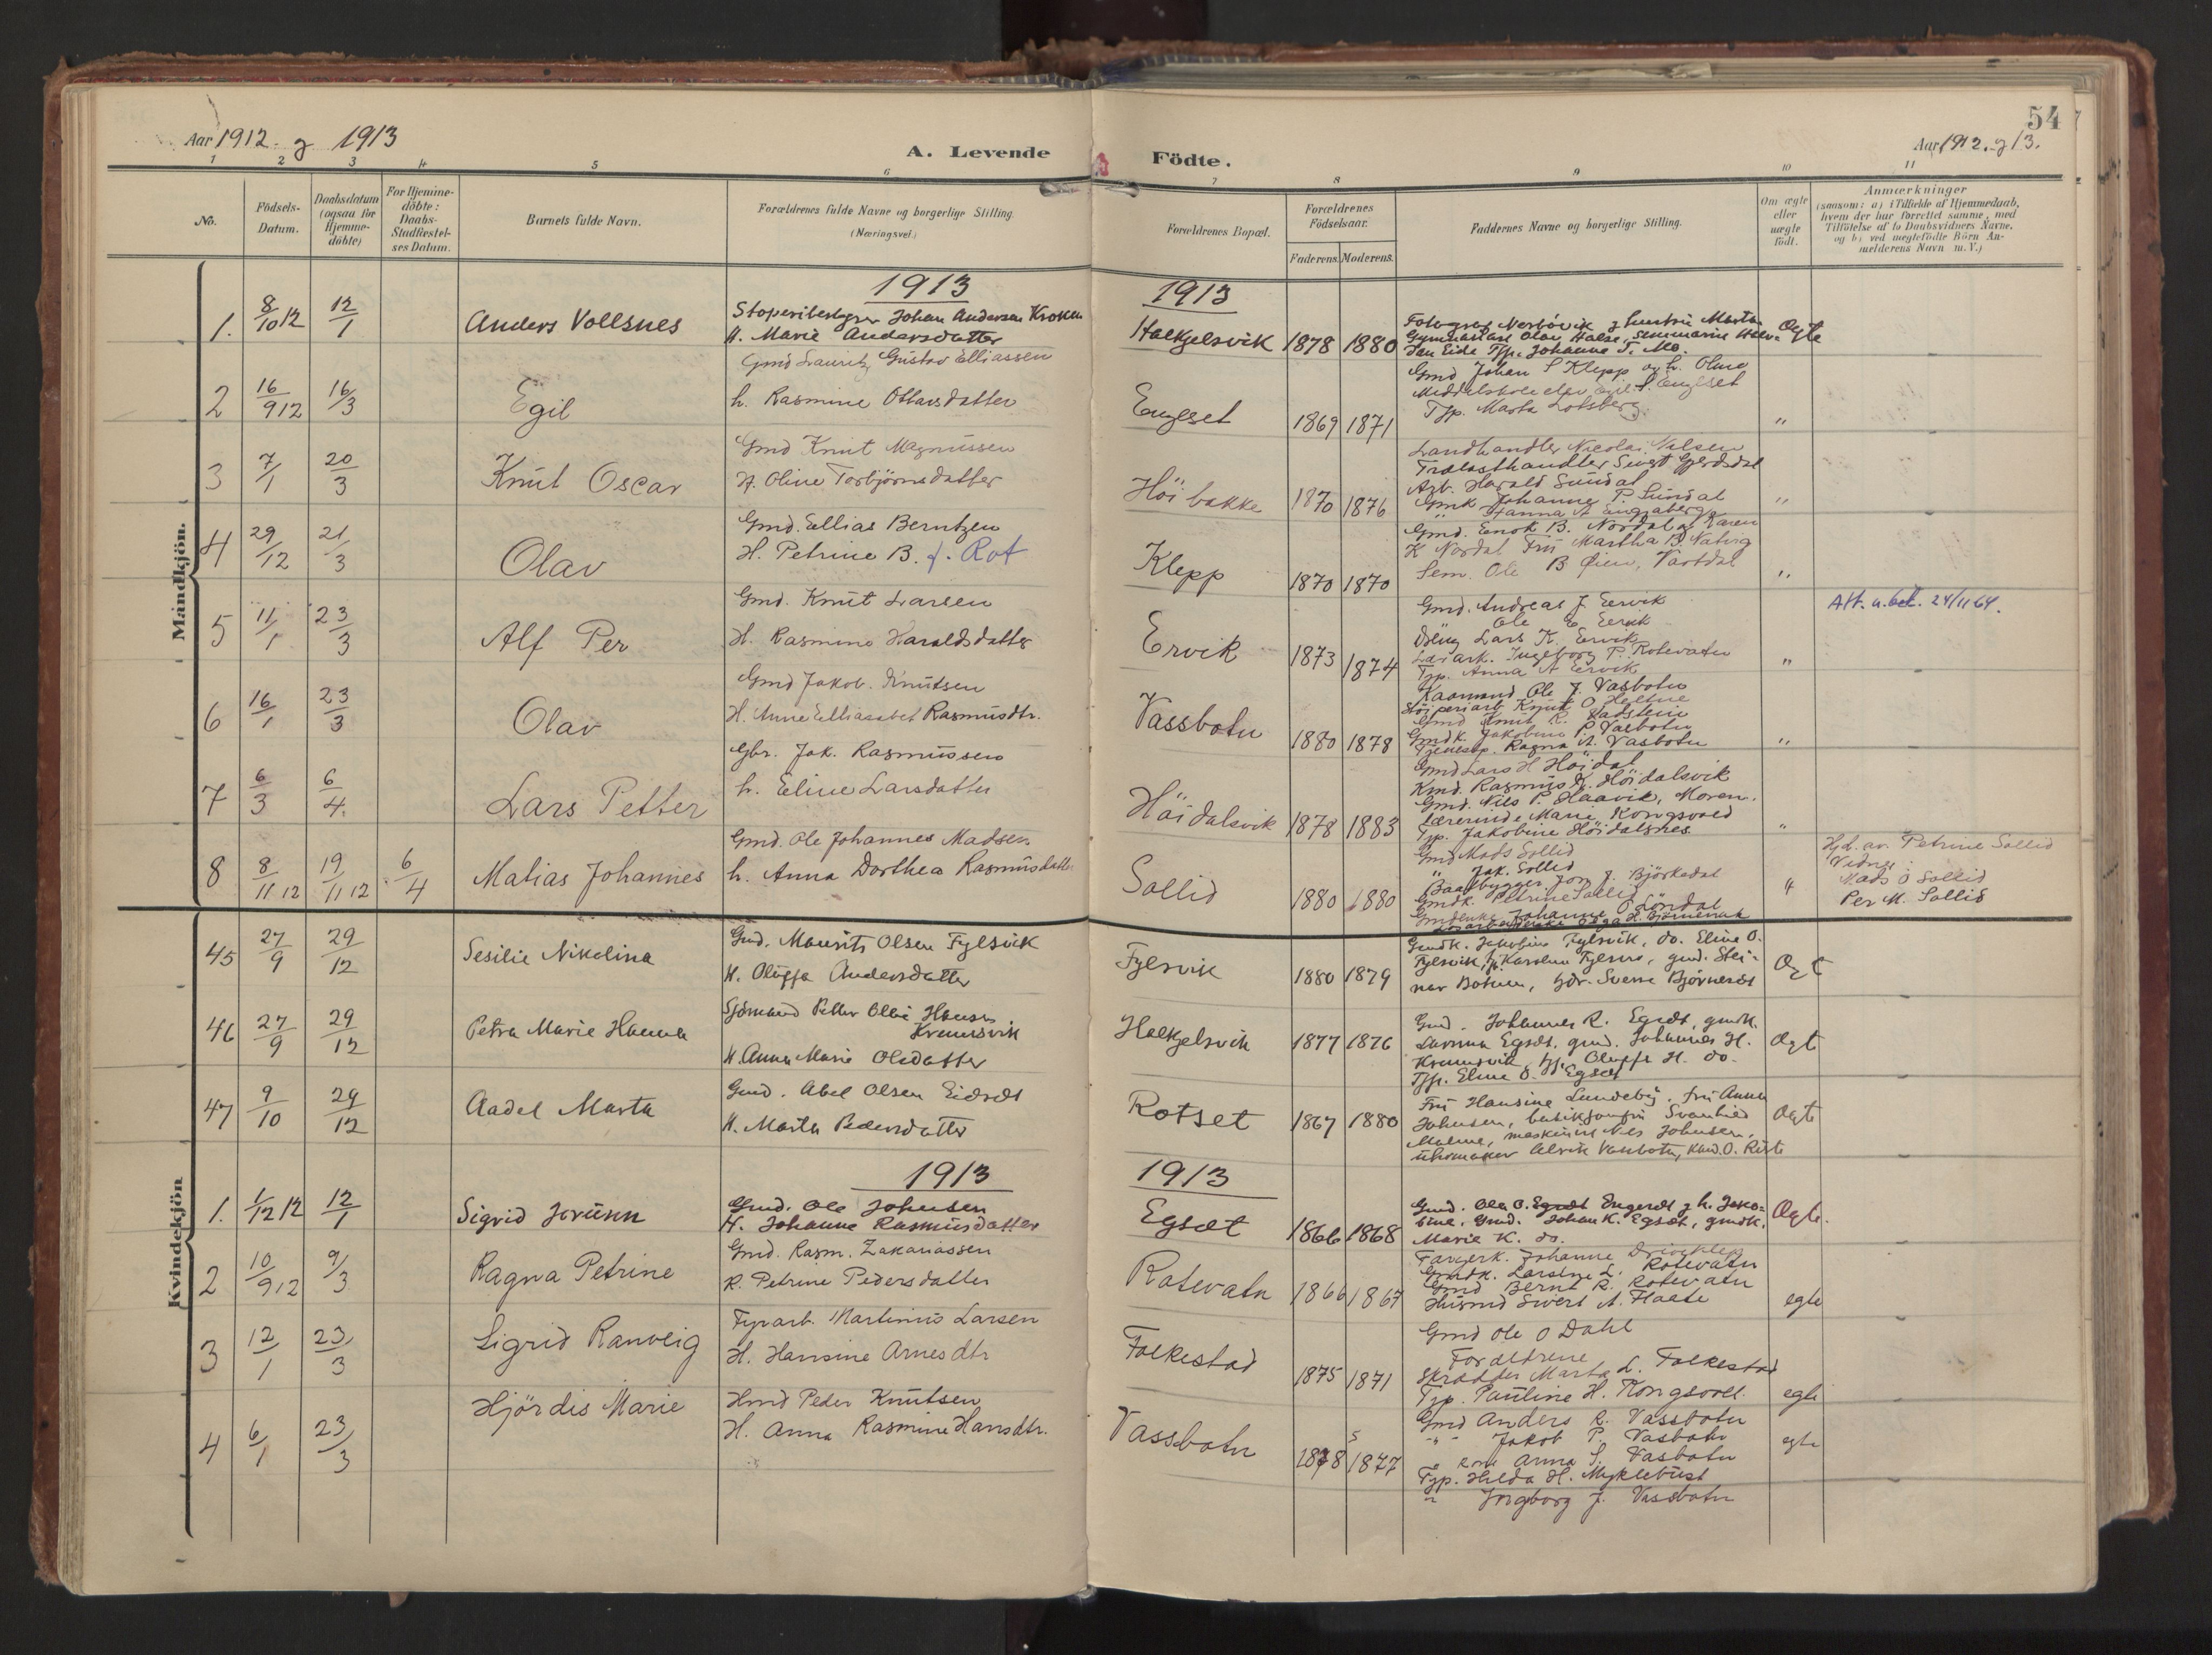 54
Aar 1912. g 1913
A. Levende
Födte.
Aar 1912. g 13.
1 2 3 4 5 6 7 8 9 10 11
No.
Födsels-
Datum.
Daabsdatum
(ogsaa for
Hjemme-
döbte)
For Hjemme-
döbte:
Daabs-
Stadfæstel-
ses Datum.
Barnets fulde Navn.
Forældrenes fulde Navne og borgerlige Stilling.
(Næringsvei.)
Forældrenes Bopæl.
Forældrenes
Födselsaar.
Faderens. Moderens.
Faddernes Navne og borgerlige Stilling.
Om ægte
eller
uægte
födt.
Anmærkninger
(saasom: a) i Tilfælde af Hjemmedaab,
hvem der har forrettet samme, med
Tilföielse af to Daabsvidners Navne,
og b) ved uægtefödte Börn An-
melderens Navn m.V.)
Mandkjön.
1913
1913
1. 8/10 12 12/1 Anders Vollsnes
Johan Andersen Kroken
H. Marie Andersdatter
1878 1880
Gymnastars Olav Halse,
Jan Eide Tjp. Johanne T. Mo.
Ogte
2 16/9 12 16/3 Egil
Gmd Lauritz Gustav Elliassen
h. Rasmine Ottarsdatter
Engeset 1869 1871
Gmd Johan S Klepp og h. Oline
Middelskoleelev S. Engeset
Tjp. Marta Lotsberg.
"
3 7/1 20/3 Knut Oscar
Gmd Knut Magnussen
H. Oline Torbjörnsdatter
Höibakke 1870 1876
Landhandler Nicolai Nilsen
Trælasthandler Sivert Gjerdsdal
Arb. Harald Sundal
Gmk Johanne P. Sundal
"
4 29/12 21/3 Olav
Gmd. Ellias Berntzen
H. Petrine B. f. Rot
Klepp 1870 1870
Gmd. Enok B. Nordal g Karen
K Nordal Fru Martha B.
Sem. Ole B Øien, Vartdal
"
5 11/1 23/3 Alf Per
Gmd. Knut Larsen
H. Rasmine Haraldsdatter
Ervik 1873 1874
Gmd. Andreas J. Ervik
Ole E Ervik
Lars K. Ervik
Ingeborg P. Rotevatn
Tjp. Anna A Ervik
"
Att. u.bet. 24/11 64.
6 16/1 23/3 Olav
Gmd Jakob Knutsen
H. Anne Elliasabet Rasmusdtr.
Vassbotn 1880 1878
Kaarmand Ole J. Vasbotn
Stöperiarb Knut O Heltne
Gmd Knut R. Vadstein
Gmdk. Jakobine P Vasbotn
Tjenestp. Ragna A. Vasbotn
"
7 6/3 6/4 Lars Petter
Gbr. Jak. Rasmussen
h. Eline Larsdatter
Höidalsvik 1878 1883
Gmd Lars H Höidal
Kmd. Rasmus K. Höidalsvik
Gmd. Nils P. Haavik, Moren.
Lærerinde Marie Kongsvold
Tjp. Jakobine Höidalsnes
"
8 8/11 12 19/11 12 6/4 Matias Johannes
Gmd. Ole Johannes Madsen
h. Anna Dorthea Rasmusdatter
Sollid 1880 1880
Gmd Mads Sollid
" Jak. Sollid
Baadbygger Jon J. Björkedal
Gmdk. Petrine Sollid
Johanne O Löndal
"
Hjd. av. Petrine Sollid
Vidner:
Mads O Sollid
Per M. Sollid
Kvindekjön
45 27/9 29/12 Sesilie Nikolina
Gmd. Maurits Olsen Fylsvik
H. Oluffa Andersdatter
Fylsvik 1880 1879
Gmdk. Jakobine Fylsvik, do. Eline O.
Fylsvik, tjp. Karoline Fylsvik, gmd. Stei-
nar Botnen, gdr. Sverre Björneset
Ogt
46 27/9 29/12 Petra Marie Hanna
Sjömand Petter Olai Hansen
Kremsvik
H. Anna Marie Olsdatter
1877 1876
Gmd. Johannes R. Egset, gmdk.
Lavrina Egset, gmd. Johannes H.
Kremsvik, tjp. Oluffa H. do.
Tjp. Eline O. Egset
Ogt
47 9/10 29/12 Aadel Marta
Gmd. Abel Olsen Eidset
H. Marta Pedersdatter
Rotset 1867 1880
Fru Hansine Lundeby, fru Anna
Johnsen, butikjomfru Svanhild
Malene, maskinist Nils Johnsen,
uhrmaker Alvik Vasbotn,
Ogte
1913
1913
1. 1/12 12 12/1 Sigrid Jorunn
Gmd. Ole Johnsen
H. Johanne Rasmusdatter
Egset 1866 1868
Gmd. Ole O. Engeset g h. Jako-
bine. Gmd. Johan K. Egset, gmdk.
Marie K. do.
Ogte.
2 10/9 12 9/3 Ragna Petrine
Gmd. Rasm. Zakariassen
K. Petrine Pedersdatter
Rotevatn 1866 1867
Farverk. Johanne Driveklep
Gmdk. Larsine L. Rotevatn
Gmd Bernt R. Rotevatn
Husmd Sivert A. Flaate
egte
3 12/1 23/3 Sigrid Ranveig
Fyrarb. Martinus Larsen
H. Hansine Arnesdtr
Folkestad 1875 1871
Gmd Ole O Dahl
Forældrene
Skrædder Marta L. Folkestad
Tjp. Pauline H. Kongsvoll.
egte
4 6/1 23/3 Hjördis Marie
Hmd Peder Knutsen
H. Anna Rasmine Hansdtr.
Vassbotn 1878 1877
5
Gmd Anders R. Vassbotn
" - Jakob P. Vasbotn
" kone Anna S. Vasbotn
Tjp. Hilda H. Myklebust
" Ingborg J. Vassbotn
egte